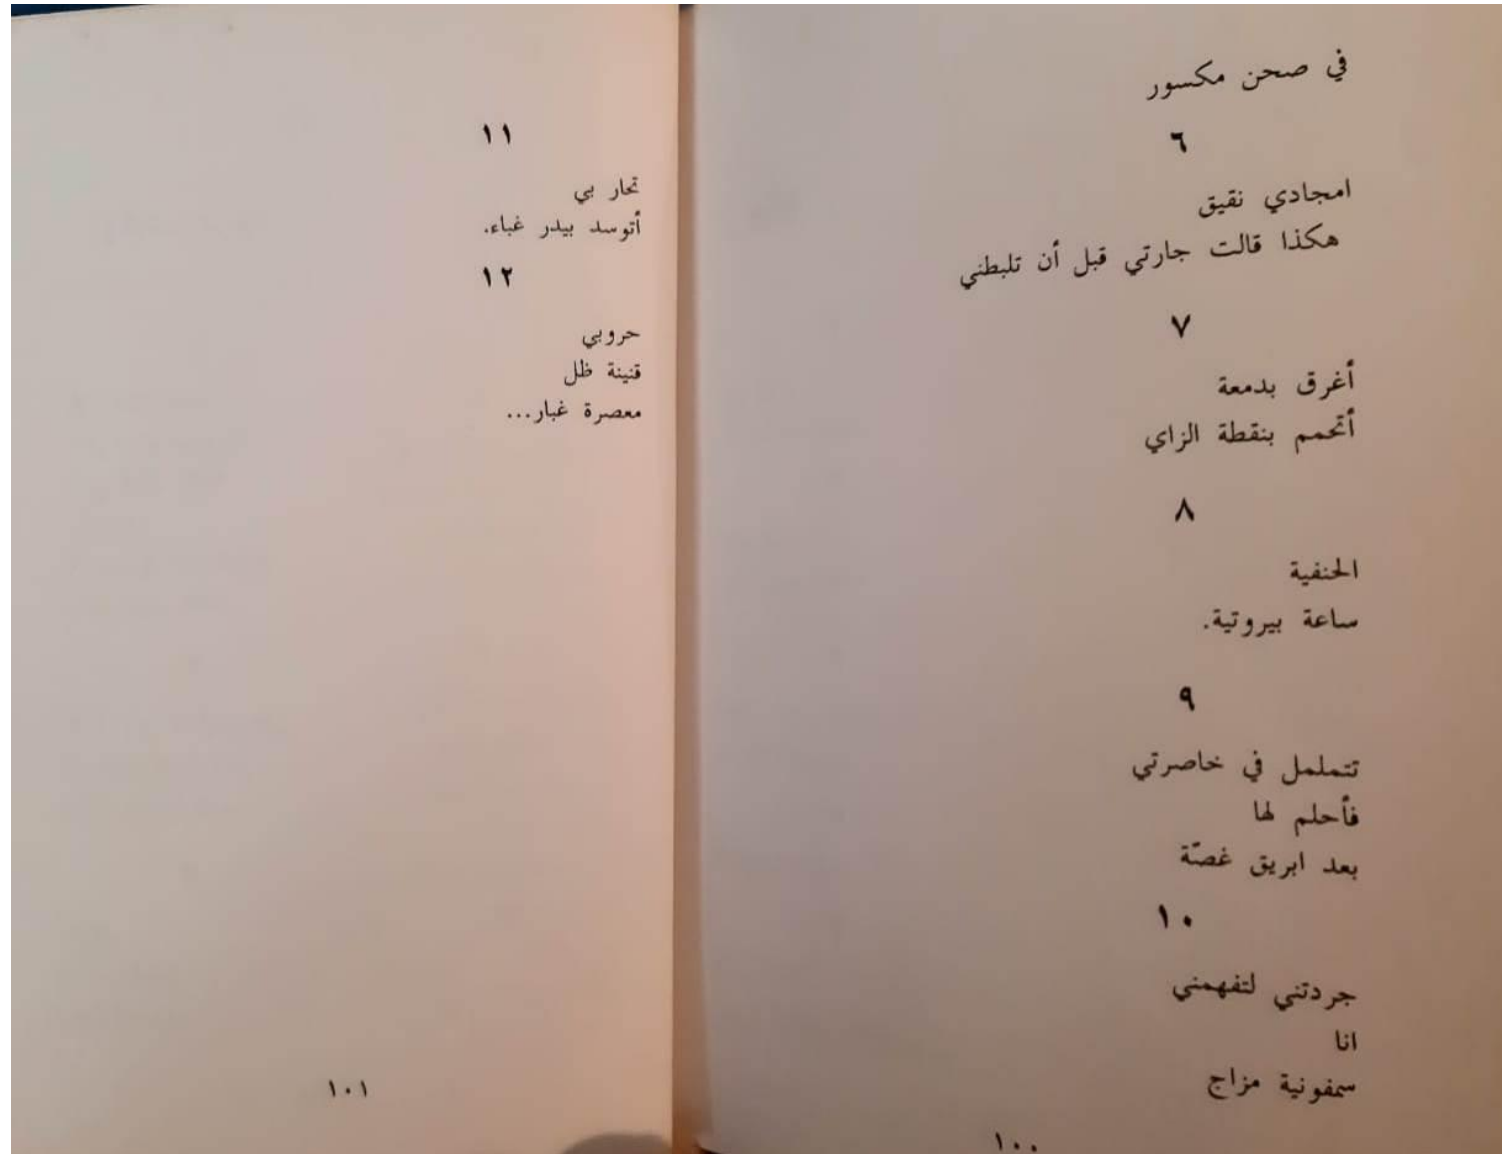 في صحن مكسور
٦
امجادي نقيق
هكذا قالت جارتي قبل أن تلبطني
٧
أغرق بدمعة
أتحمم بنقطة الزاي
٨
الحنفية
ساعة بيروتية.
٩
تتململ في خاصرتي
فأحلم لها
بعد ابريق غصّة
١٠
جردتني لتفهمني
انا
سمفونية مزاج
١٠٠
١١
تحار بي
أتوسد بيدر غباء.
١٢
حروبي
قنينة ظل
معصرة غبار...
١٠١